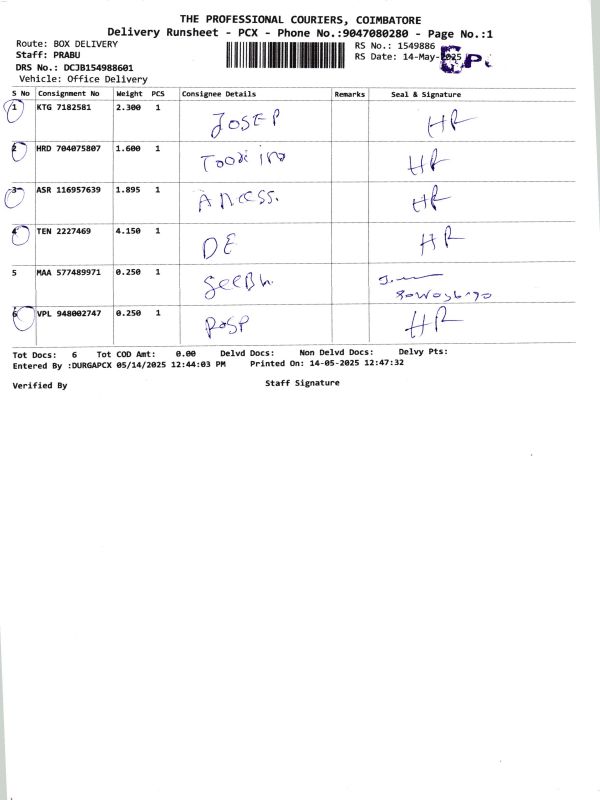 THE PROFESSIONAL COURIERS, COIMBATORE
Delivery Runsheet - PCX - Phone No.:9047080280 - Page No.:1
Route: BOX DELIVERY
Staff: PRABU
DRS No.: DCJB154988601
Vehicle: Office Delivery
RS No.: 1549886
RS Date: 14-May-2025
S No Consignment No Weight PCS Consignee Details Remarks Seal & Signature
1 KTG 7182581 2.300 1 JOSEP HR
2 HRD 704075807 1.600 1 HR
3 ASR 116957639 1.895 1 HR
4 TEN 2227469 4.150 1 DE HR
5 MAA 577489971 0.250 1
6 VPL 948002747 0.250 1 HR
Tot Docs: 6 Tot COD Amt: 0.00 Delvd Docs: Non Delvd Docs: Delvy Pts:
Entered By :DURGAPCX 05/14/2025 12:44:03 PM Printed On: 14-05-2025 12:47:32
Verified By Staff Signature